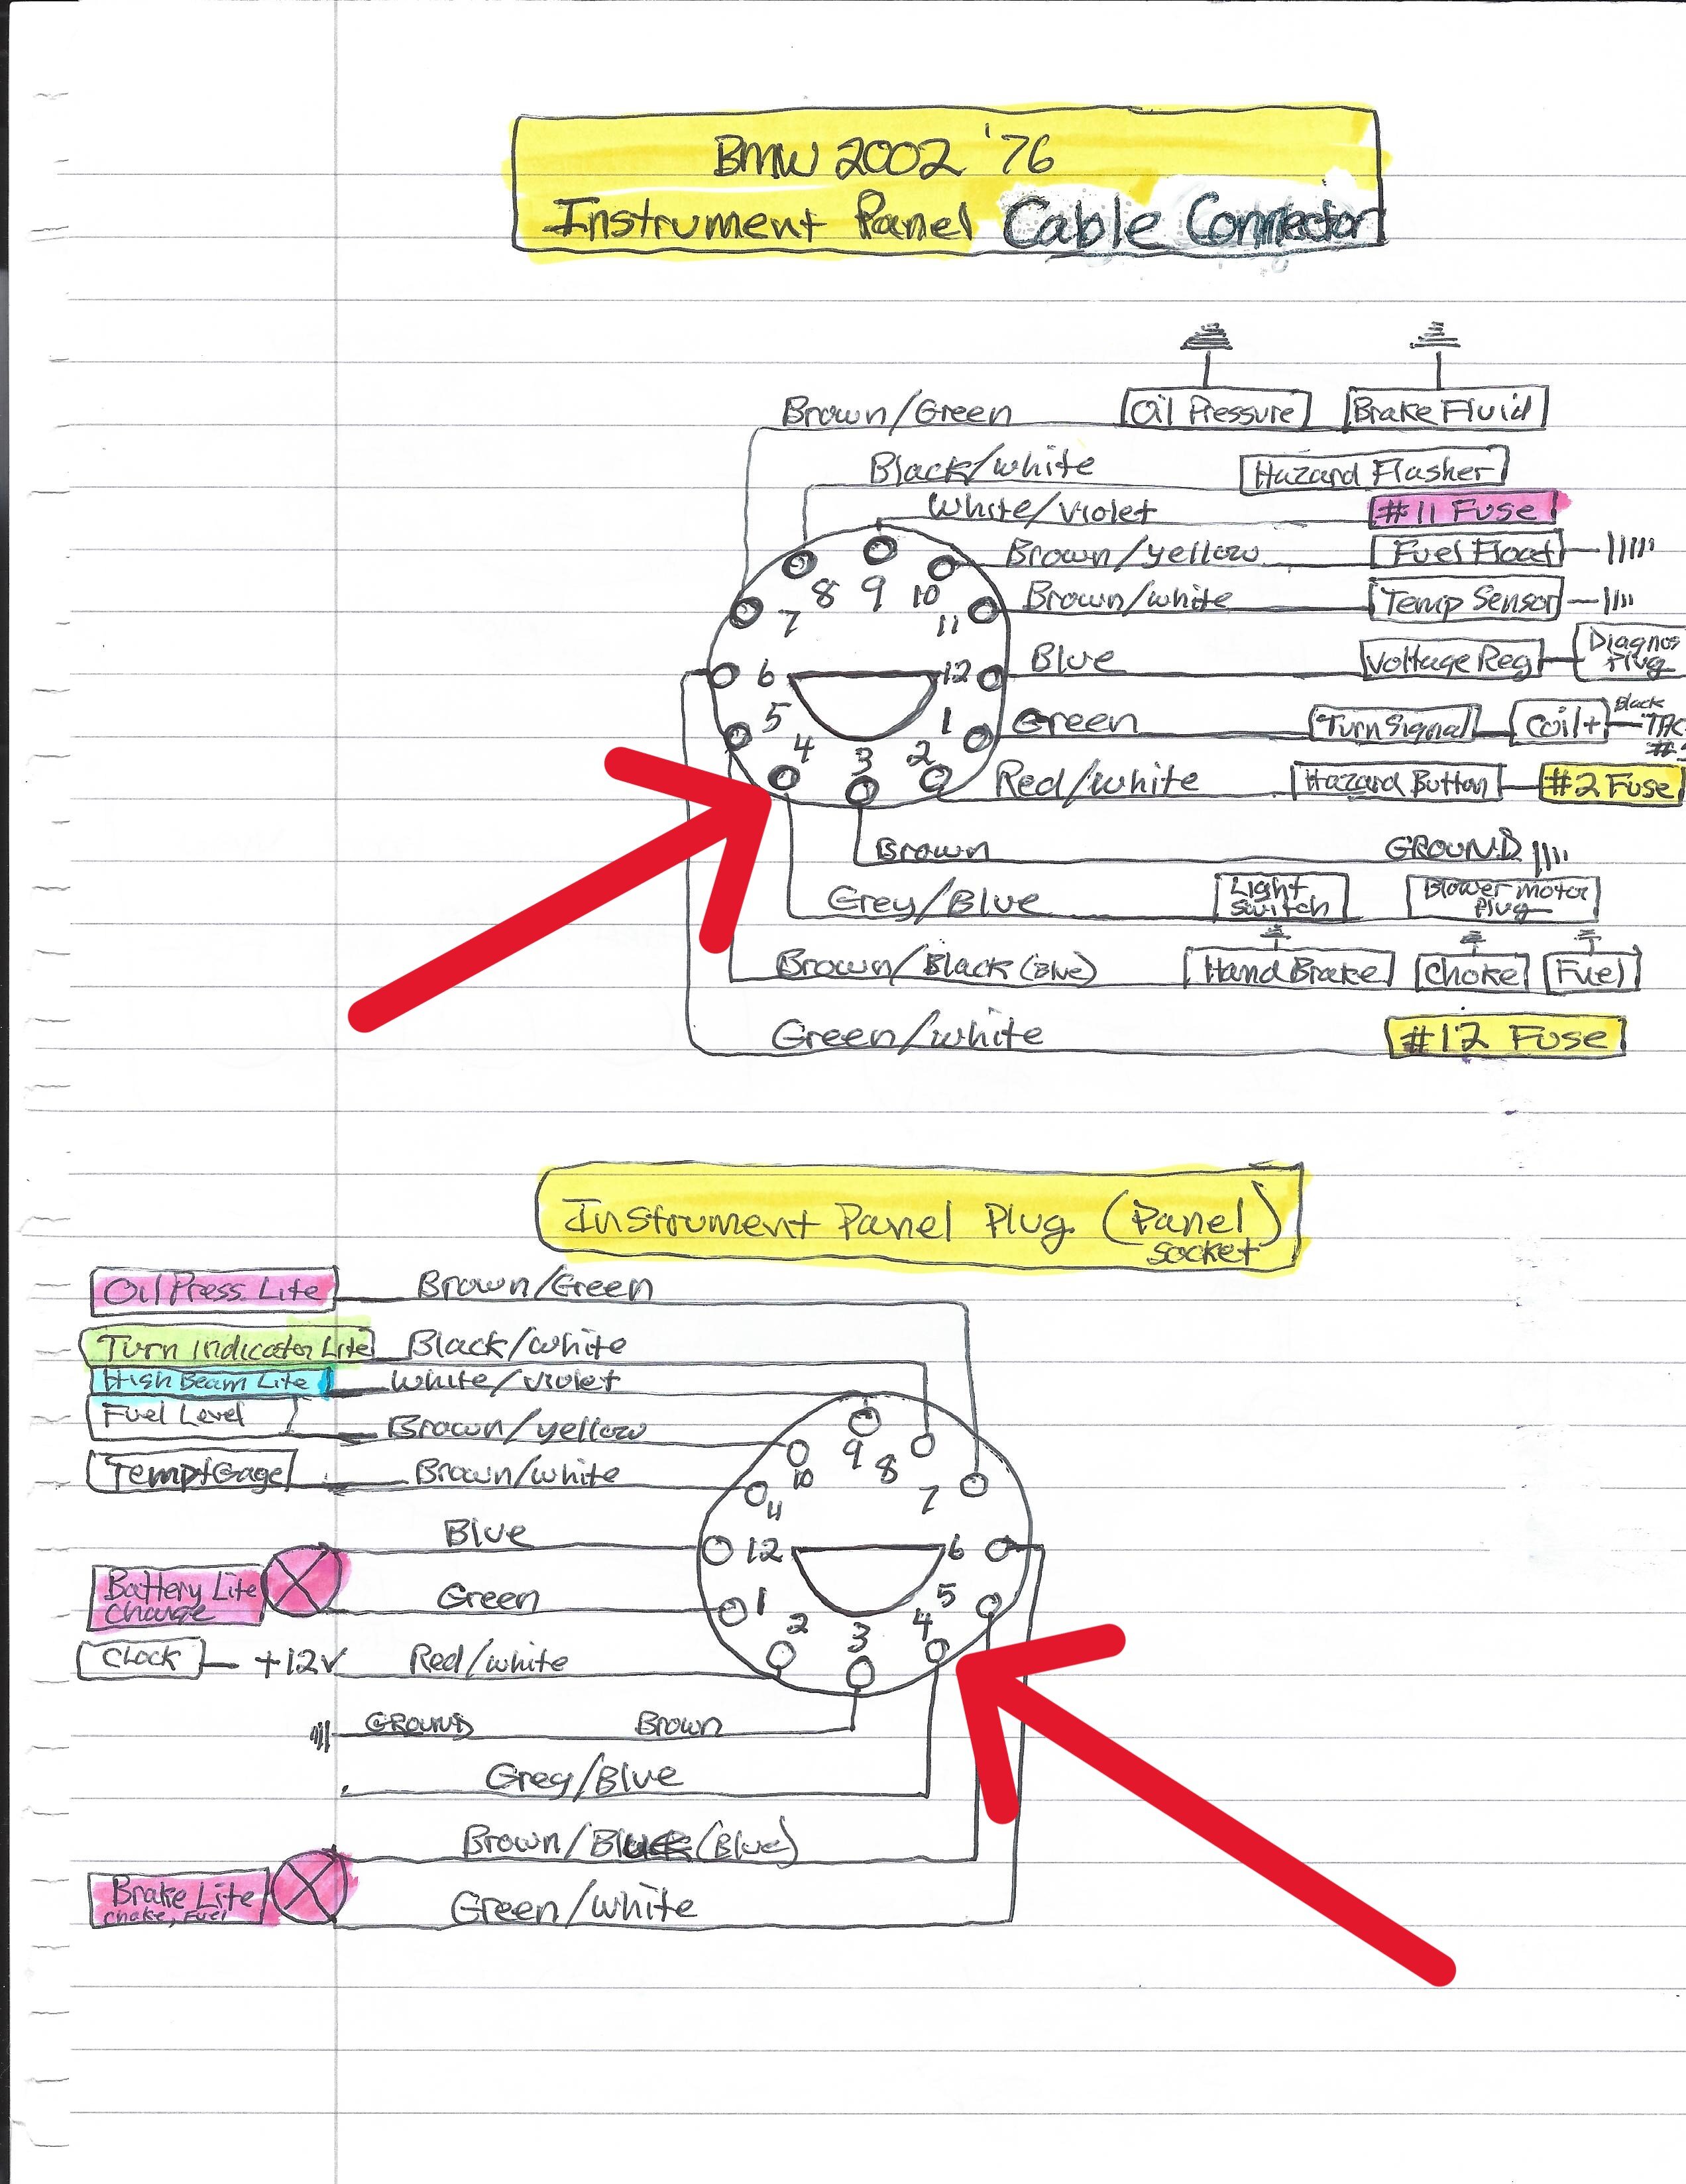 BMW 2002 '76
Instrument Panel Cable Connector
Brown/Green Oil Pressure Brake Fluid
Black/white Hazard Flasher
White/Violet #11 Fuse
Brown/yellow Fuel Float
Brown/white Temp Sensor
Blue Voltage Reg Diagnos Plug
Green Turn Signal Coil+ Black
Red/white Hazard Button #2 Fuse
Brown GROUND
Grey/Blue Light Switch Blower Motor Plug
Brown/Black (Blue) Hand Brake Choke Fuel
Green/white #12 Fuse
8 9 10
7 11
6 12
5 1
4 3 2
Instrument Panel Plug (Panel)
socket
Oil Press. Lite Brown/Green
Turn Indicator Lite Black/white
High Beam Lite White/violet
Fuel Level Brown/yellow
Temp Gage Brown/white
Blue
Battery Lite
Charge
Green
Clock +12V Red/white
GROUND Brown
Grey/Blue
Brown/Black (Blue)
Brake Lite
Choke, Fuel
Green/white
10 9 8
11 7
12 6
1 5
2 3 4